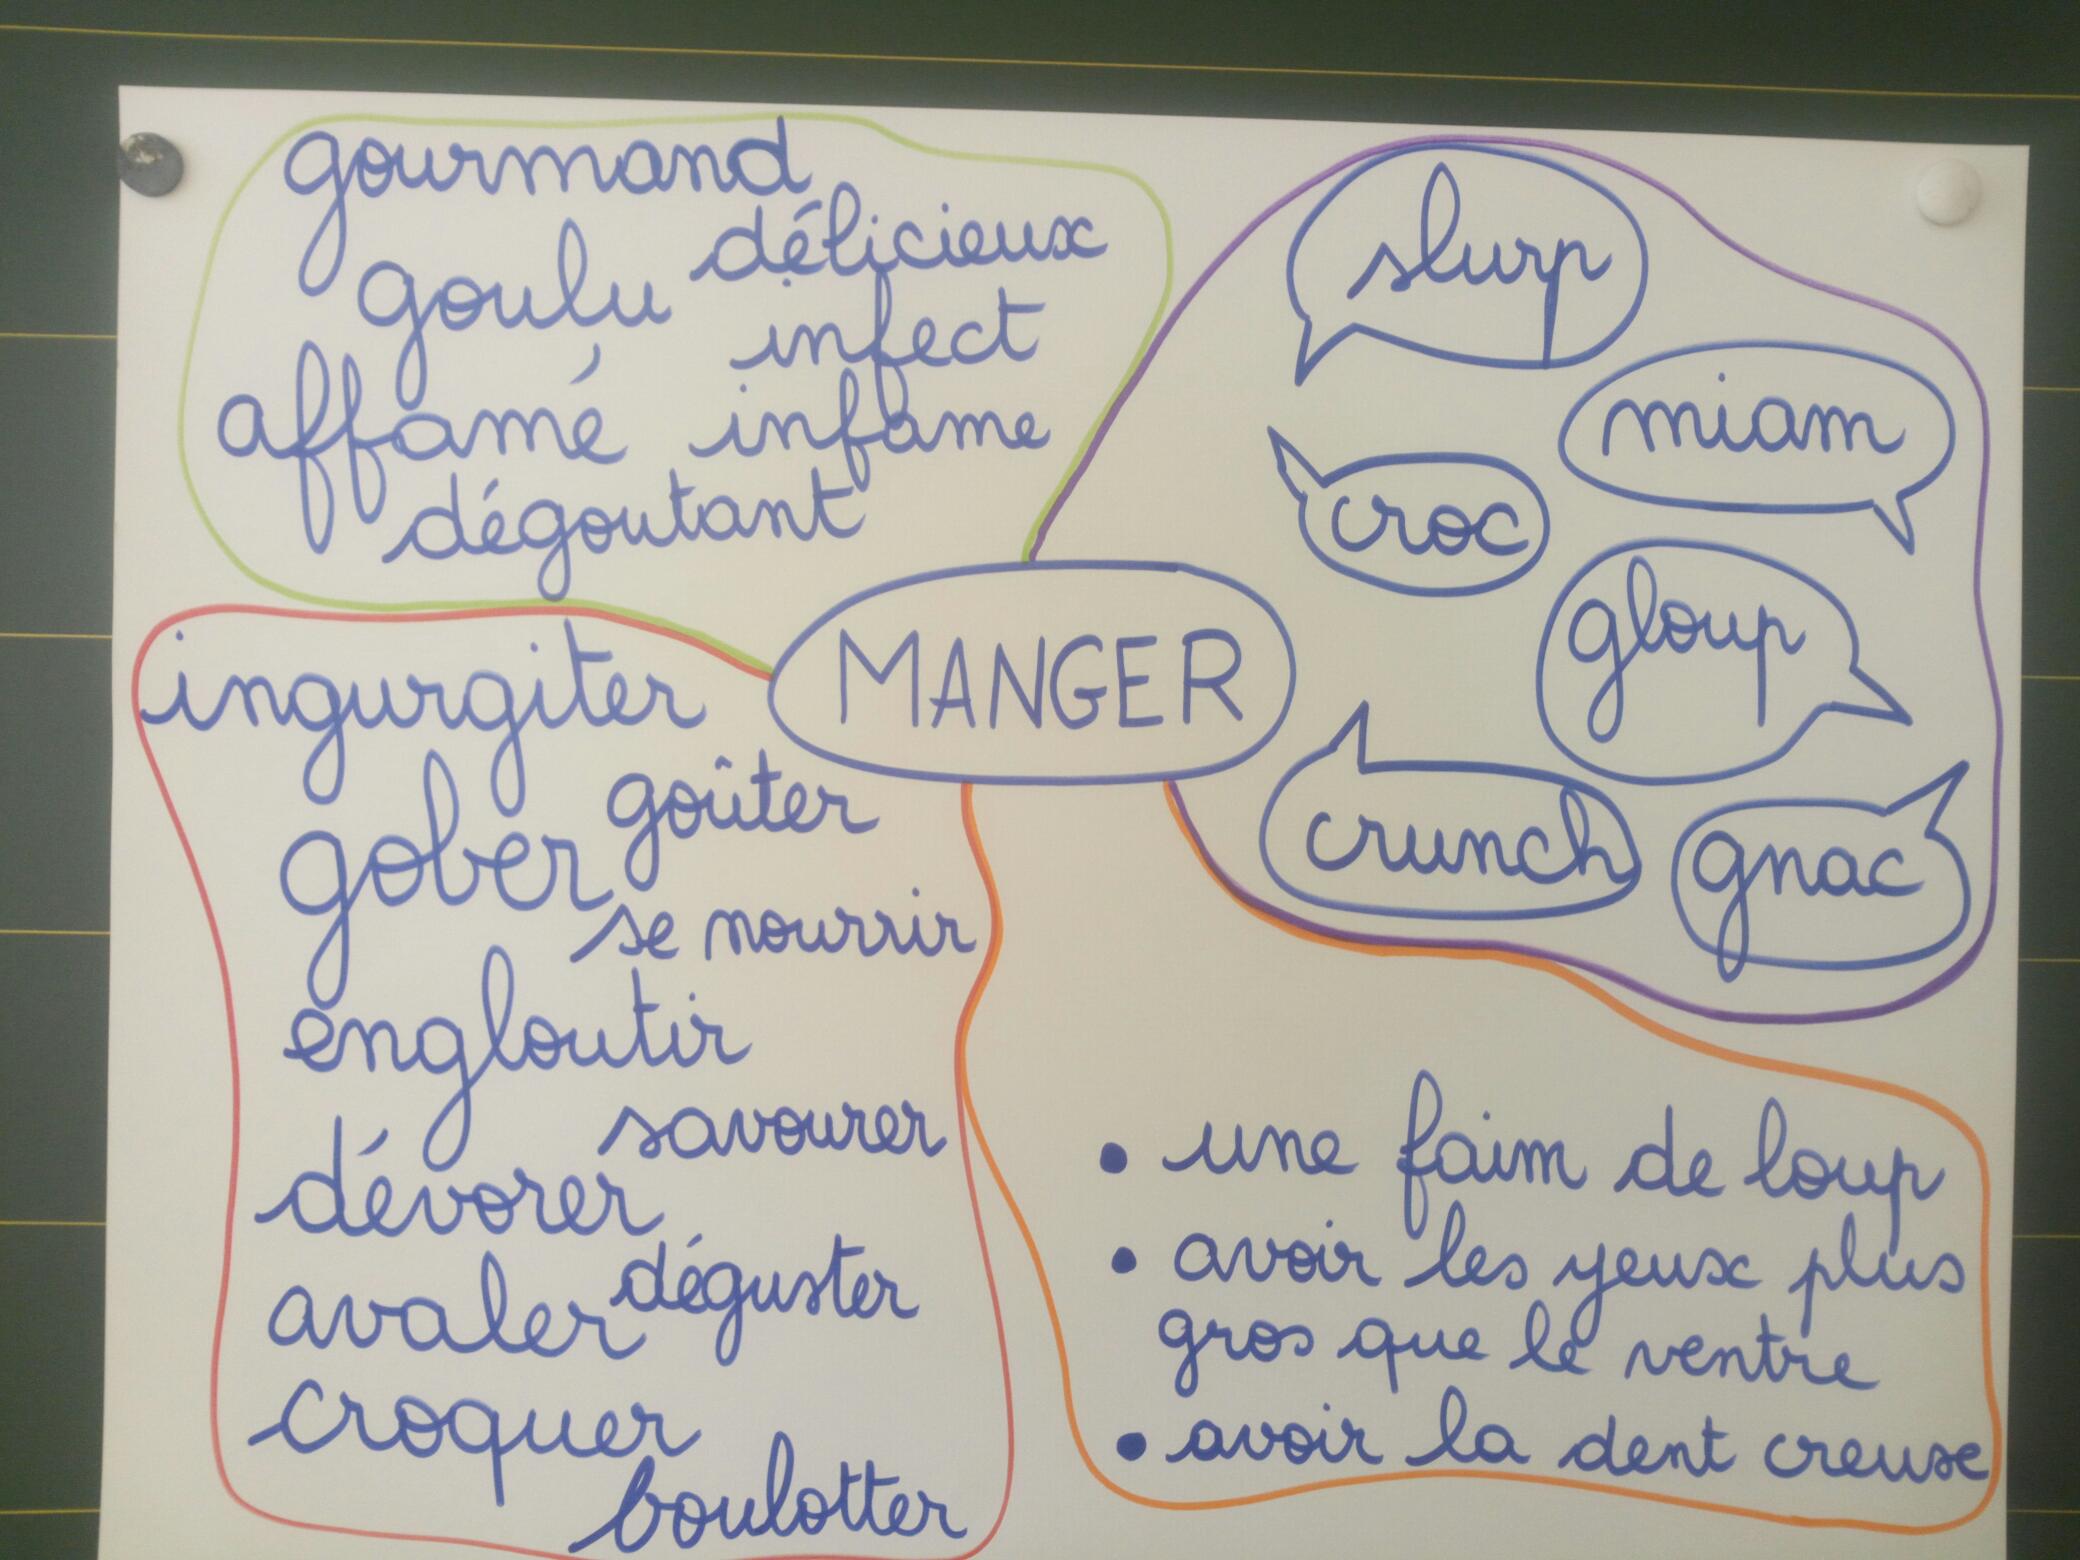 gourmand
délicieux
goulu
infect
affamé
infame
dégoutant
MANGER
slurp
miam
croc
gloup
crunch
gnac
ingurgiter
goûter
gober
se nourrir
engloutir
savourer
dévorer
déguster
avaler
croquer
boulotter
• une faim de loup
• avoir les yeux plus
gros que le ventre
• avoir la dent creuse